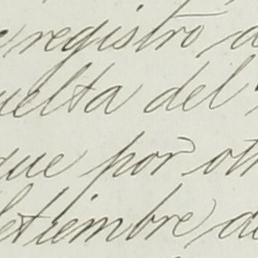 registro
uelta del
que por
etiembre